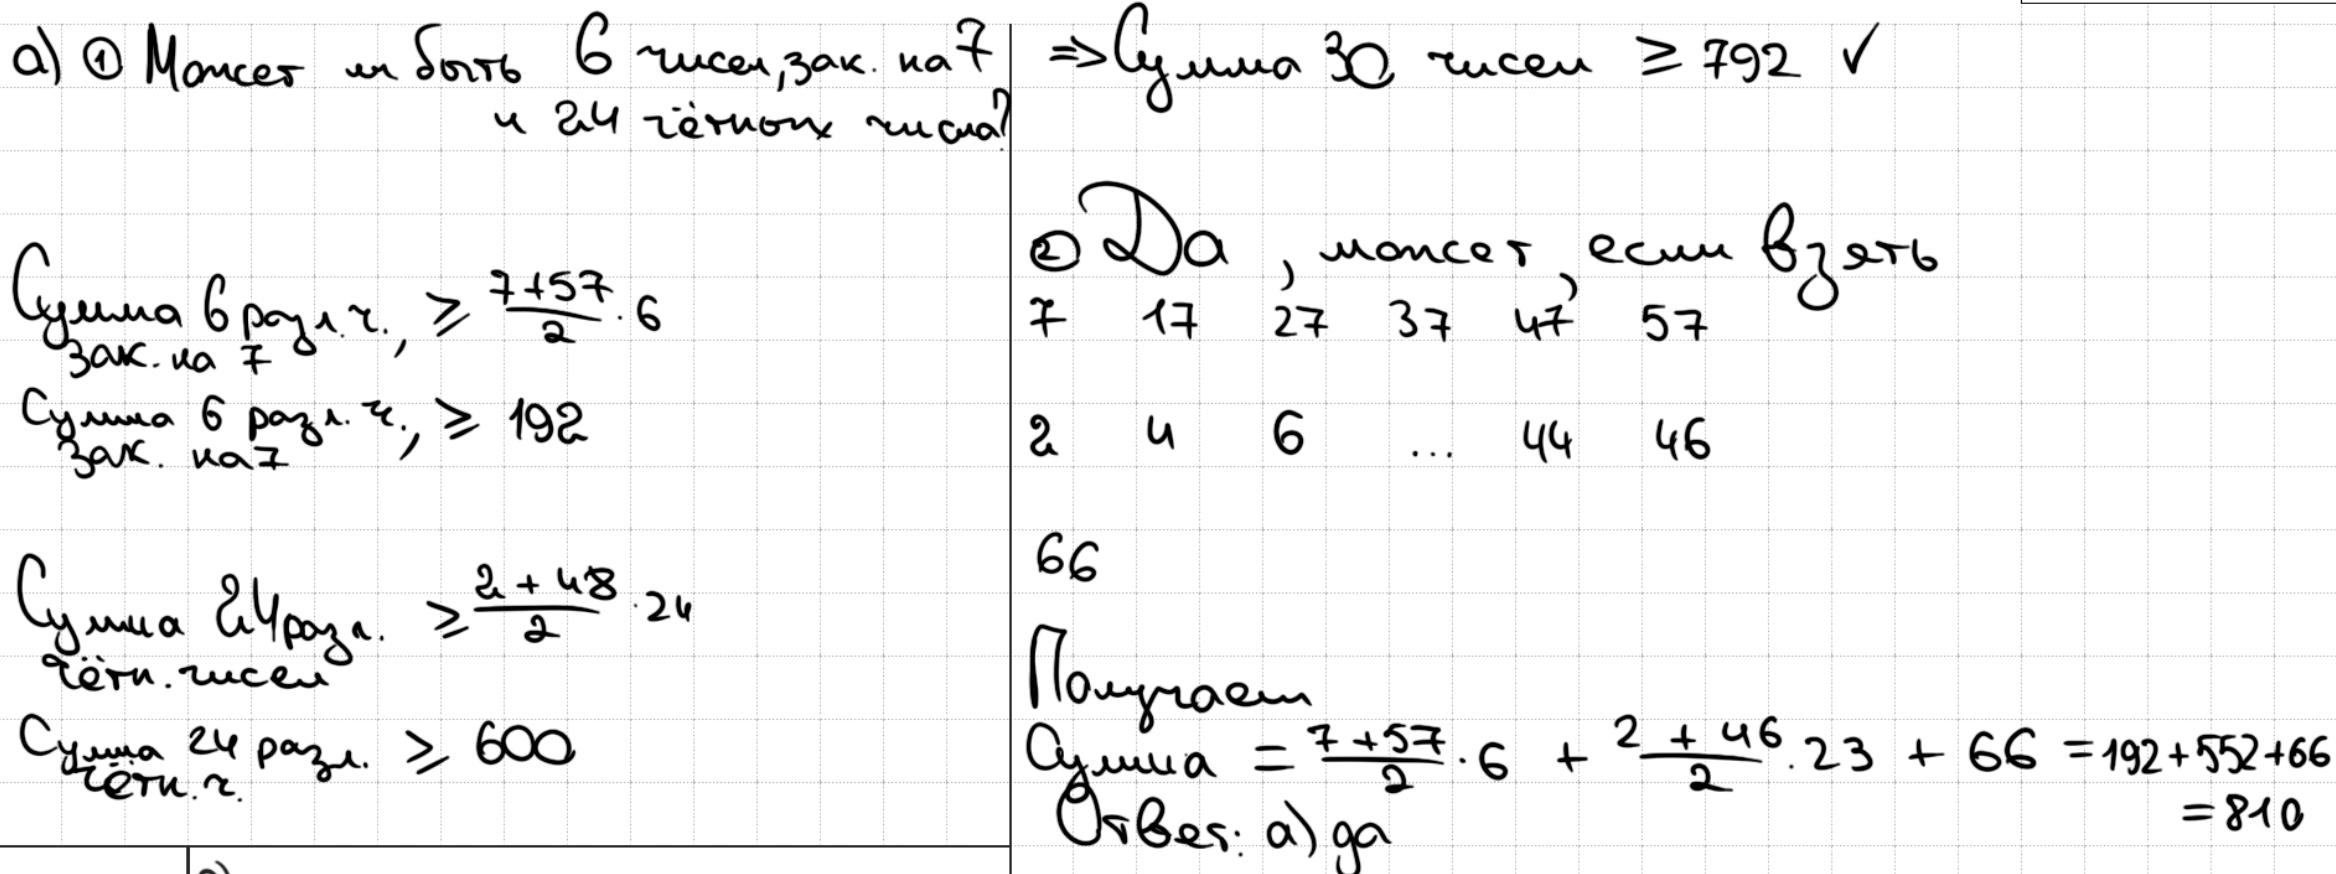 а) ① Может ли быть 6 чисел, зак. на 7
и 24 чётных числа?
Сумма 6 разл. ч., ≥ (7+57)/2 · 6
зак. на 7
Сумма 6 разл. ч., ≥ 192
зак. на 7
Сумма 24 разл. ≥ (2+48)/2 · 24
чётн. чисел
Сумма 24 разл. ≥ 600
чётн. ч.
=> Сумма 30 чисел ≥ 792 ✓
② Да, может, если взять
7 17 27 37 47 57
2 4 6 ... 44 46
66
Получаем
Сумма = (7+57)/2 · 6 + (2+46)/2 · 23 + 66 = 192+552+66
= 810
Ответ: а) да